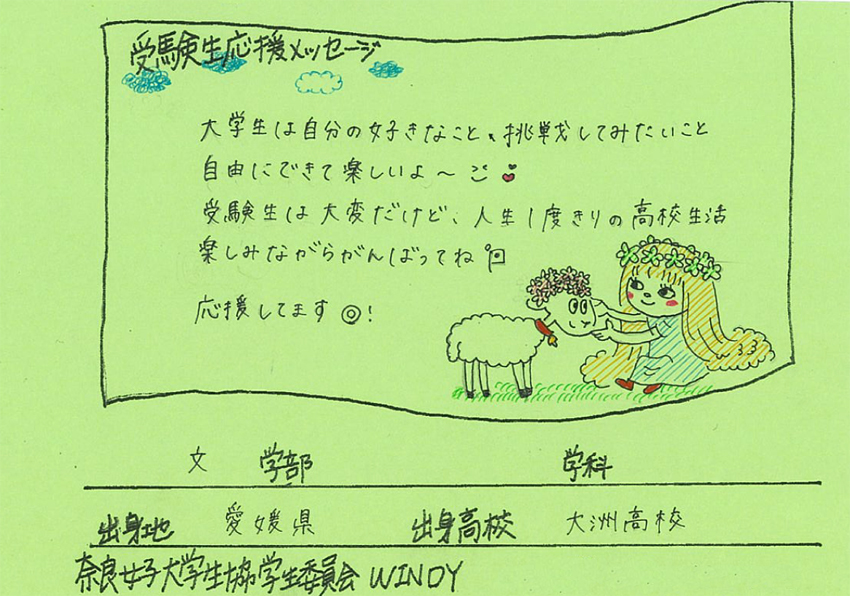 受験生応援メッセージ
大学生は自分の好きなこと、挑戦してみたいこと
自由にできて楽しいよ〜
受験生は大変だけど、人生1度きりの高校生活
楽しみながらがんばってね
応援してます◎!
文 学部 学科
出身地 愛媛県 出身高校 大洲高校
奈良女子大学生協学生委員会 WINDY